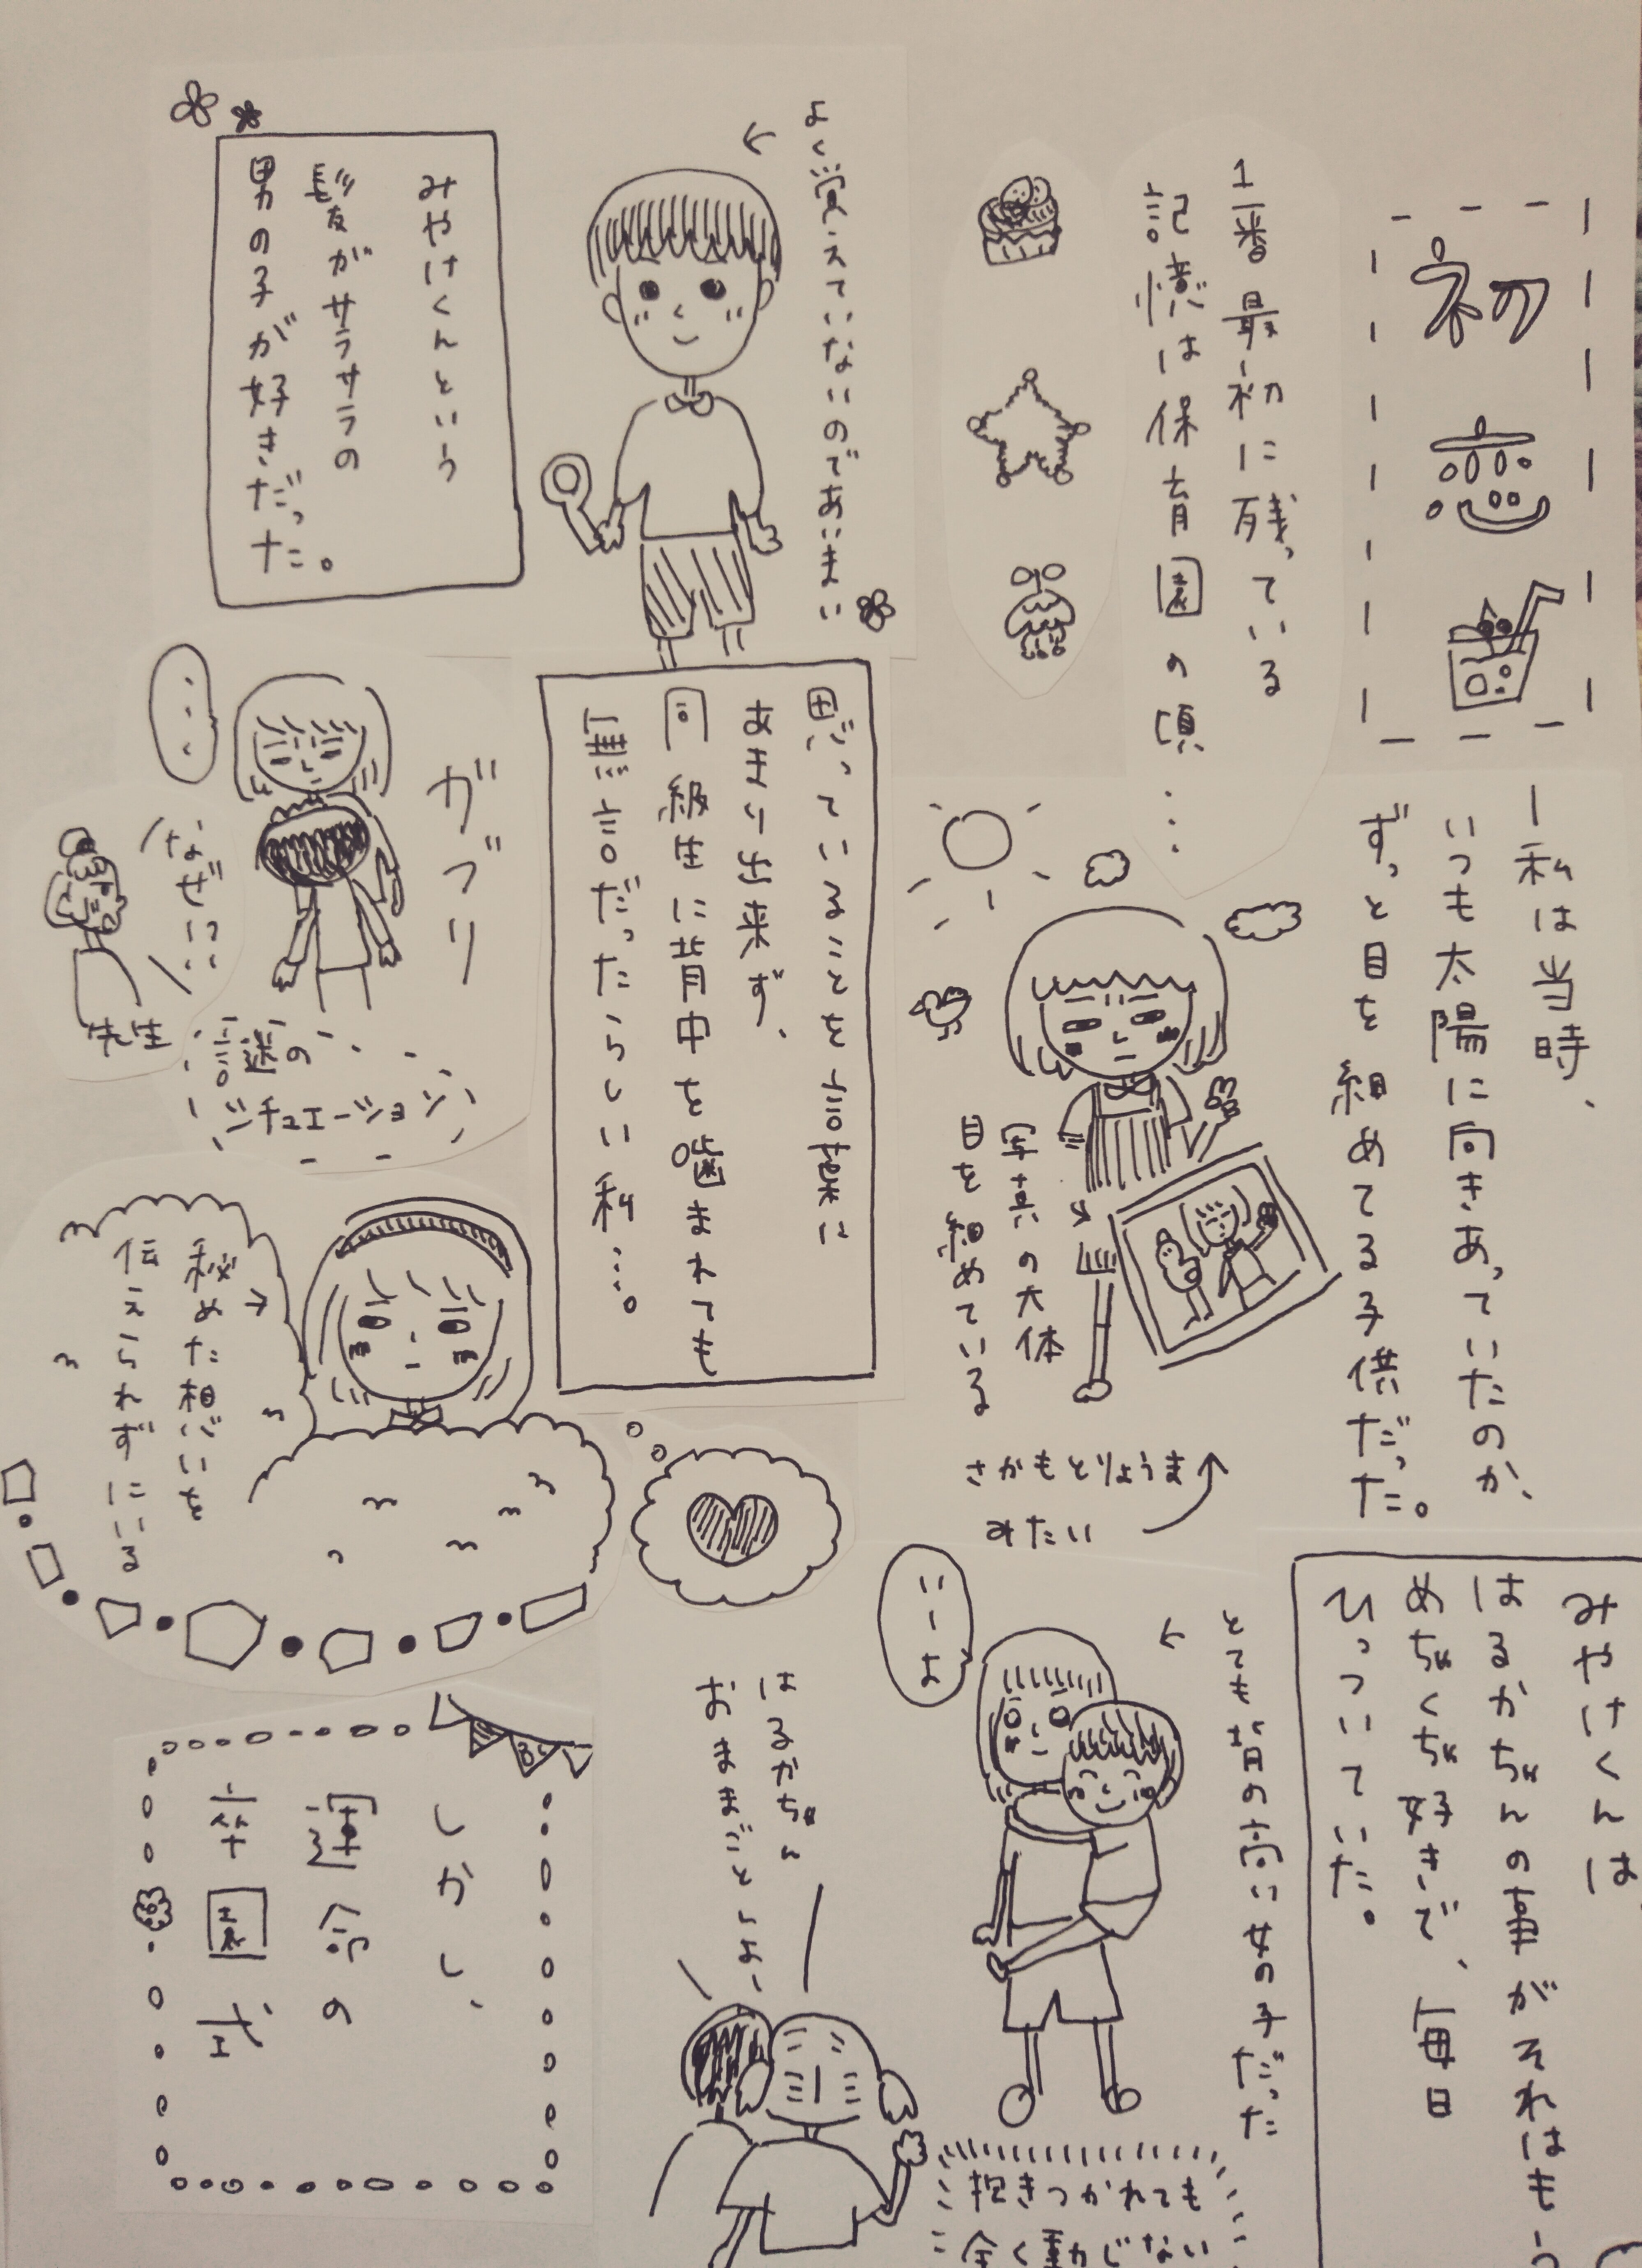 初恋
1番最初に残っている
記憶は保育園の頃…
よく覚えていないのであいまい
みやけくんという
髪がサラサラの
男の子が好きだった。
ー私は当時、
いつも太陽に向きあっていたのか、
ずっと目を細めてる子供だった。
写真の大体
目を細めている
さかもとりょうま
みたい
思っていることを言葉に
あまり出来ず、
同級生に背中を噛まれても
無言だったらしい私…。
ガブリ
…
なぜにい
先生
謎の
シチュエーション
秘めた想いを
伝えられずにいる
みやけくんは
はるかちゃんの事がそれはもう
めちゃくちゃ好きで、毎日
ひっついていた。
とても背の高い女の子だった
いーよ
抱きつかれても
全く動じない
はるかちゃん
おままごとしよー
しかし、
運命の
卒園式